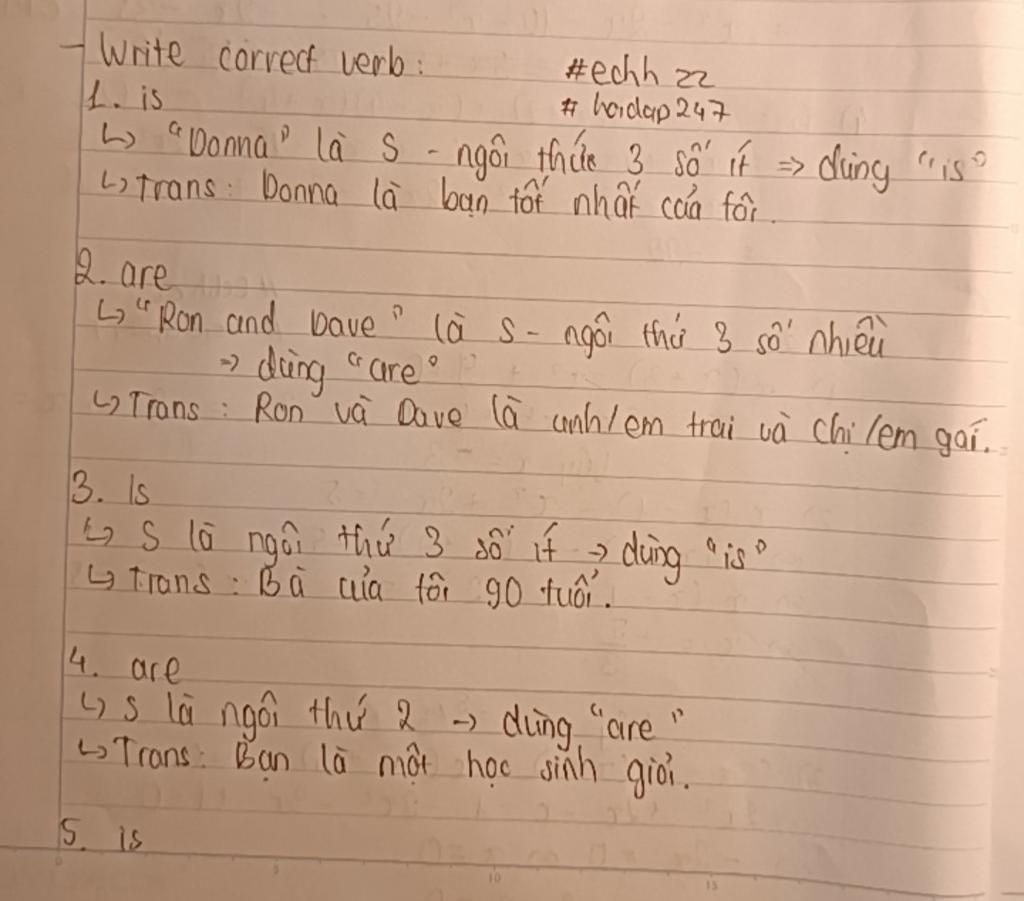 - Write correct verb:
#echh 22
1. is
# hoidap247
↳ "Donna" là S - ngôi thứ 3 số ít => dùng "is"
↳ Trans: Donna là bạn tốt nhất của tôi.
2. are
↳ "Ron and Dave" là S - ngôi thứ 3 số nhiều
=> dùng "are"
↳ Trans: Ron và Dave là anh/em trai và chị/em gái.
3. Is
↳ S là ngôi thứ 3 số ít → dùng "is"
↳ Trans: Bà của tôi 90 tuổi.
4. are
↳ S là ngôi thứ 2 → dùng "are"
↳ Trans: Bạn là một học sinh giỏi.
5. is
0 5 10 15